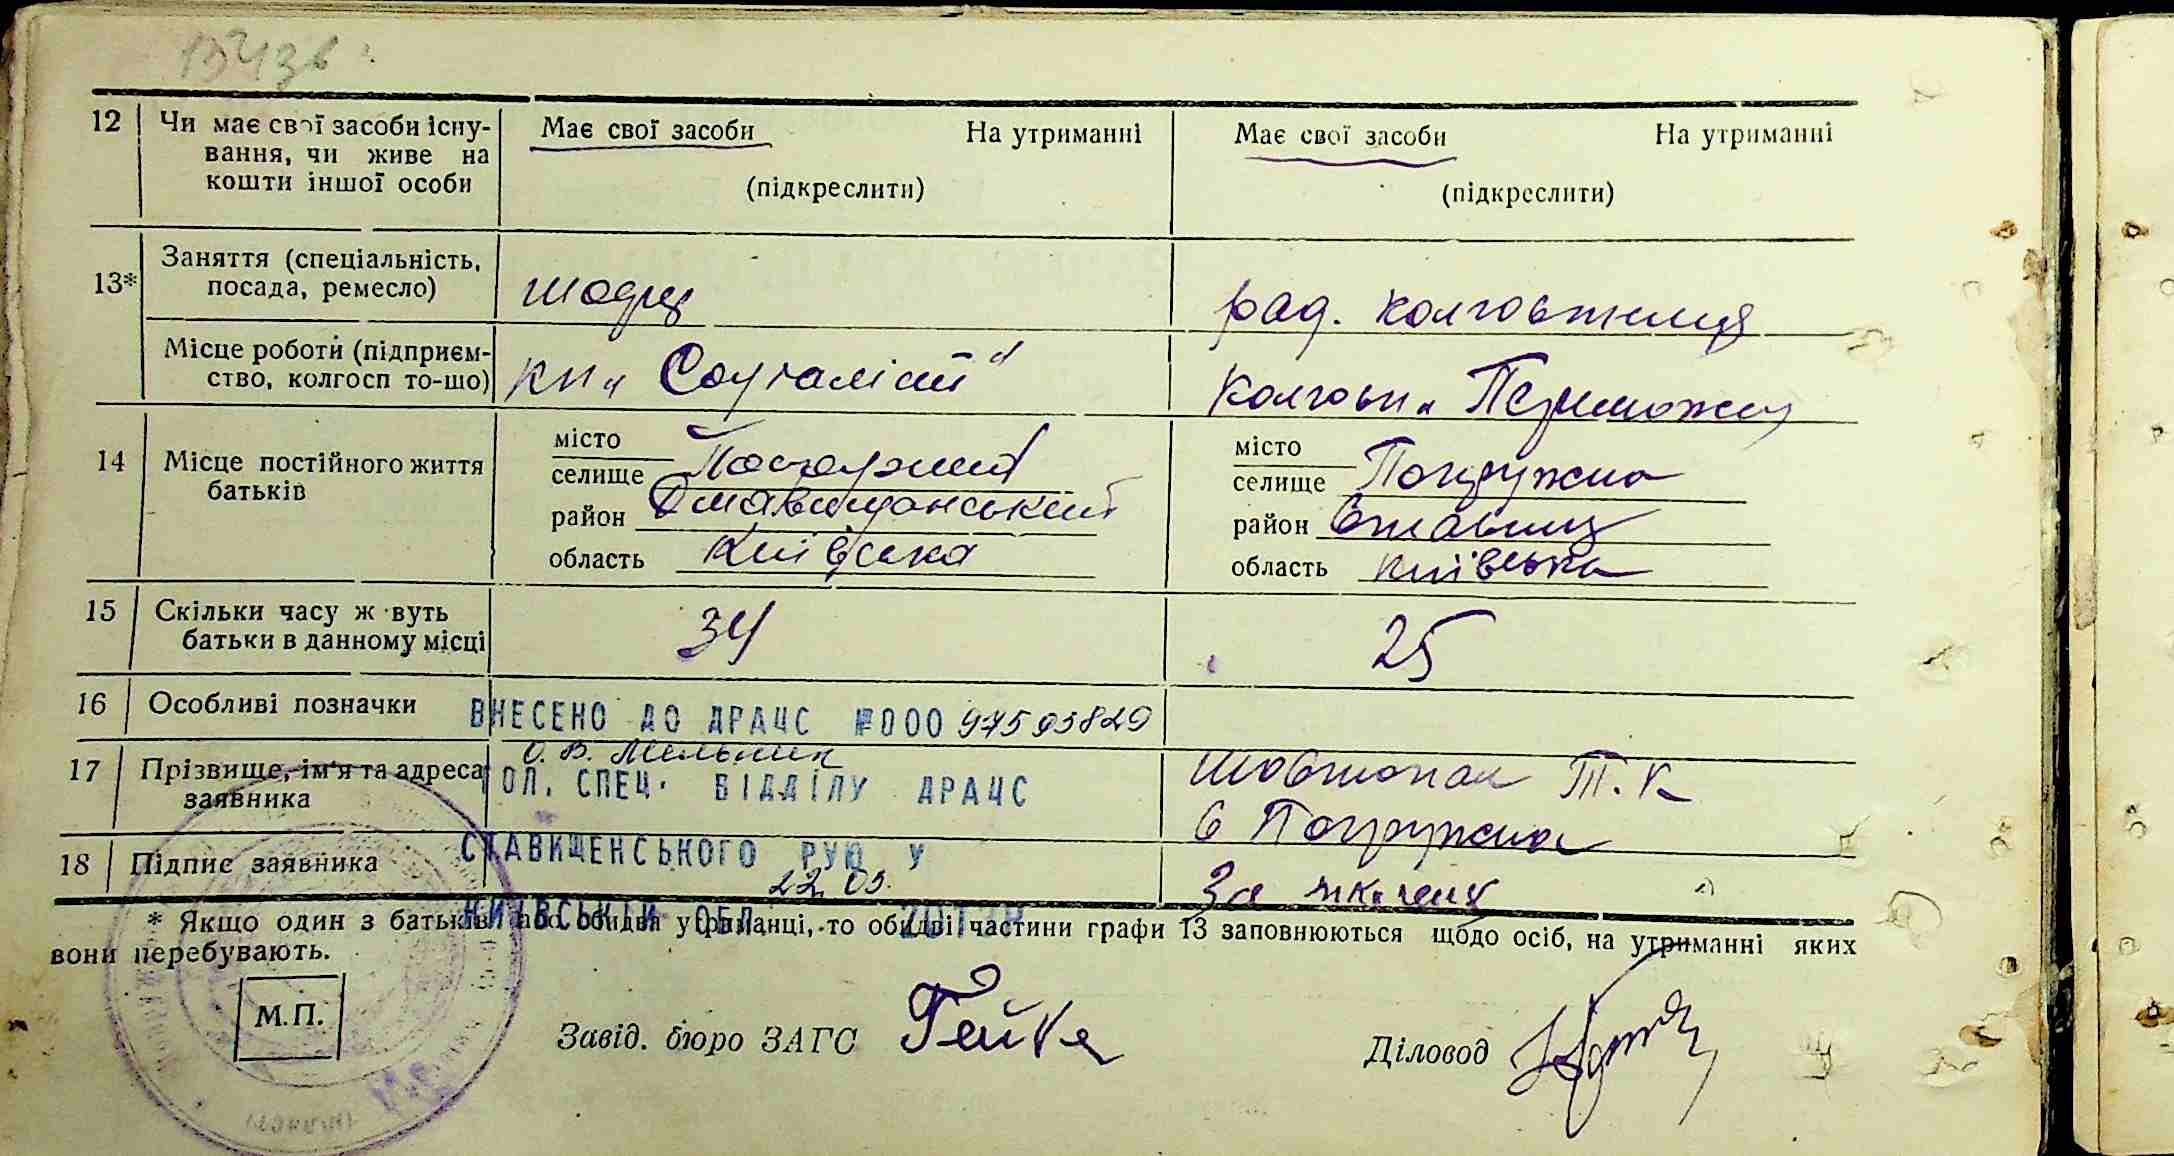 12 Чи має свої засоби існу-
вання, чи живе на
кошти іншої особи
Має свої засоби На утриманні
(підкреслити)
Має свої засоби На утриманні
(підкреслити)
13* Заняття (спеціальність,
посада, ремесло)
рад. колгоспниця
Місце роботи (підприєм-
ство, колгосп то-що)
кп „ Соціаліст"
колгосп „ Переможец
14 Місце постійного життя
батьків
місто
селище
район Ставищанський
область Київська
місто
селище Погружна
район Ставищ
область Київська
15 Скільки часу ж вуть
батьки в данному місці
34
25
16 Особливі позначки
ВНЕСЕНО ДО ДРАЦС №000 97593829
О. В. Мельник
17 Прізвище, ім'я та адреса
заявника
ГОЛ. СПЕЦ. ВІДДІЛУ ДРАЦС
Т. К
с Погружна
18 Підпис заявника
СТАВИЩЕНСЬКОГО РУЮ У
22 03.
За
КИЇВСЬКІЙ ОБЛ.
* Якщо один з батьків або обидва утриманці, то обидві частини графи 13 заповнюються щодо осіб, на утриманні яких
вони перебувають.
М.П.
Завід. бюро ЗАГС Гейка
Діловод